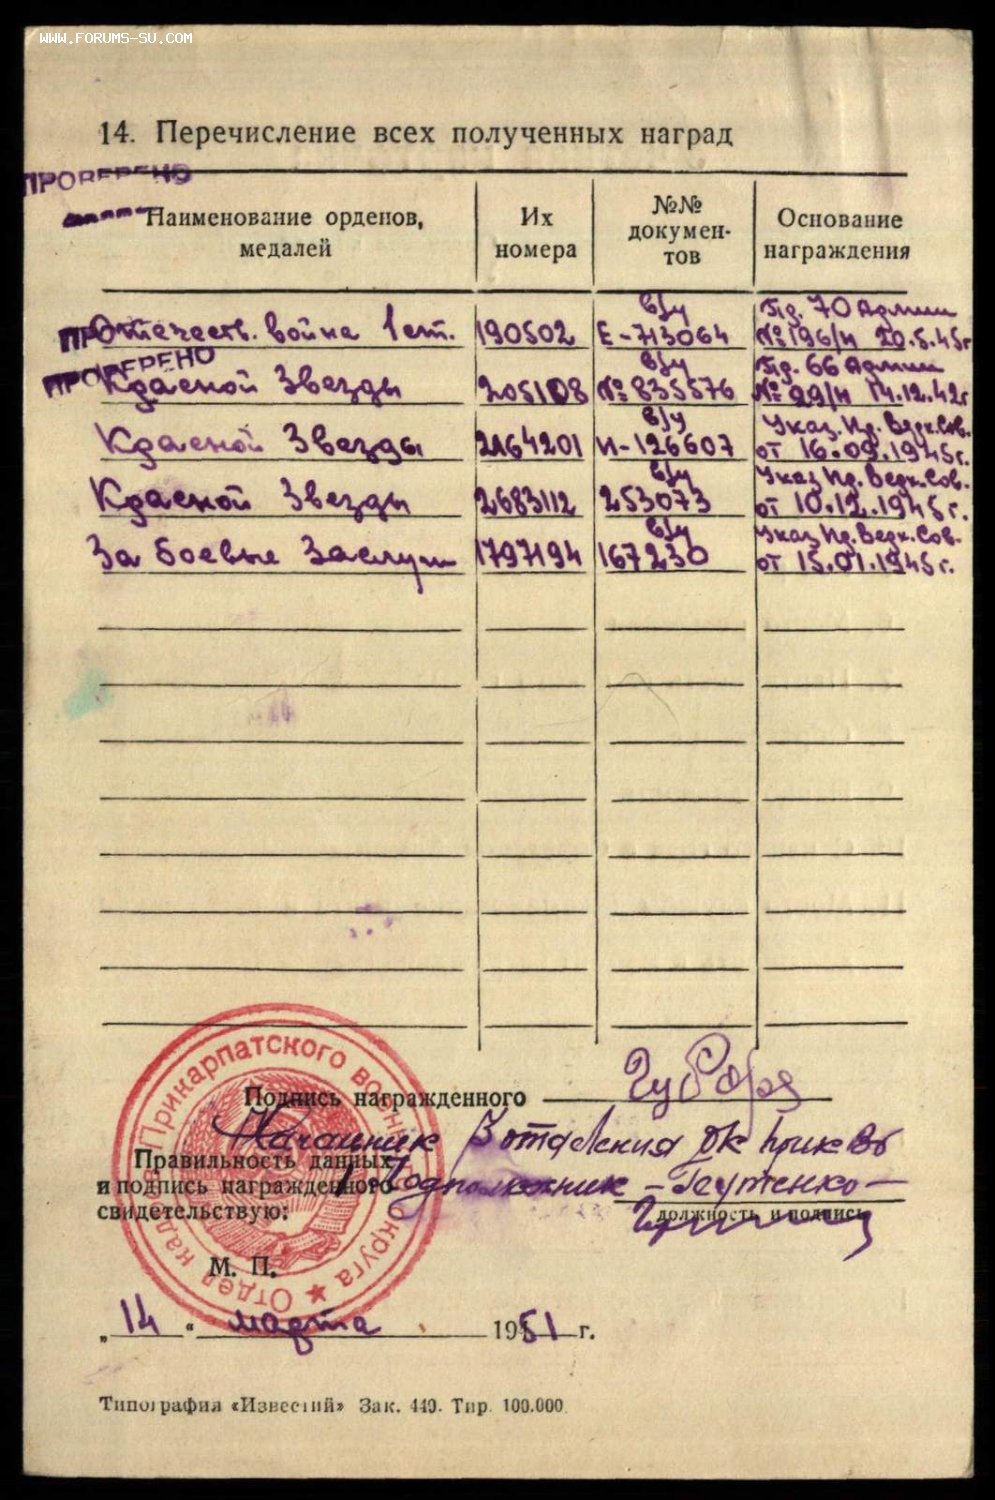 WWW.FORUMS-SU.COM
14. Перечисление всех полученных наград
ПРОВЕРЕНО
Наименование орденов, медалей
Их номера
№№ докумен-тов
Основание награждения
Отечеств. война 1 ст. 190502 в/у Е-713064 Пр. 70 Армии №196/н 20.5.45г
ПРОВЕРЕНО
Красной Звезды 205108 в/у №835576 Пр. 66 Армии №29/н 14.12.42г
Красной Звезды 2164201 в/у И-126607 Указ. Пр. Верх. Сов. от 16.09.1945г.
Красной Звезды 2683112 в/у 253073 Указ Пр. Верх. Сов. от 10.12.1945г.
За боевые заслуги 1797194 в/у 167230 Указ Пр. Верх. Сов. от 15.01.1945г.
Прикарпатского военного округа ★ Отдел
Подпись награжденного
Начальник отделения ОК ПрикВО
Правильность данных
и подпись награжденного Подполковник -
свидетельствую:
должность и подпись
М. П.
„ 14 “ марта 1951 г.
Типография «Известий» Зак. 440. Тир. 100.000